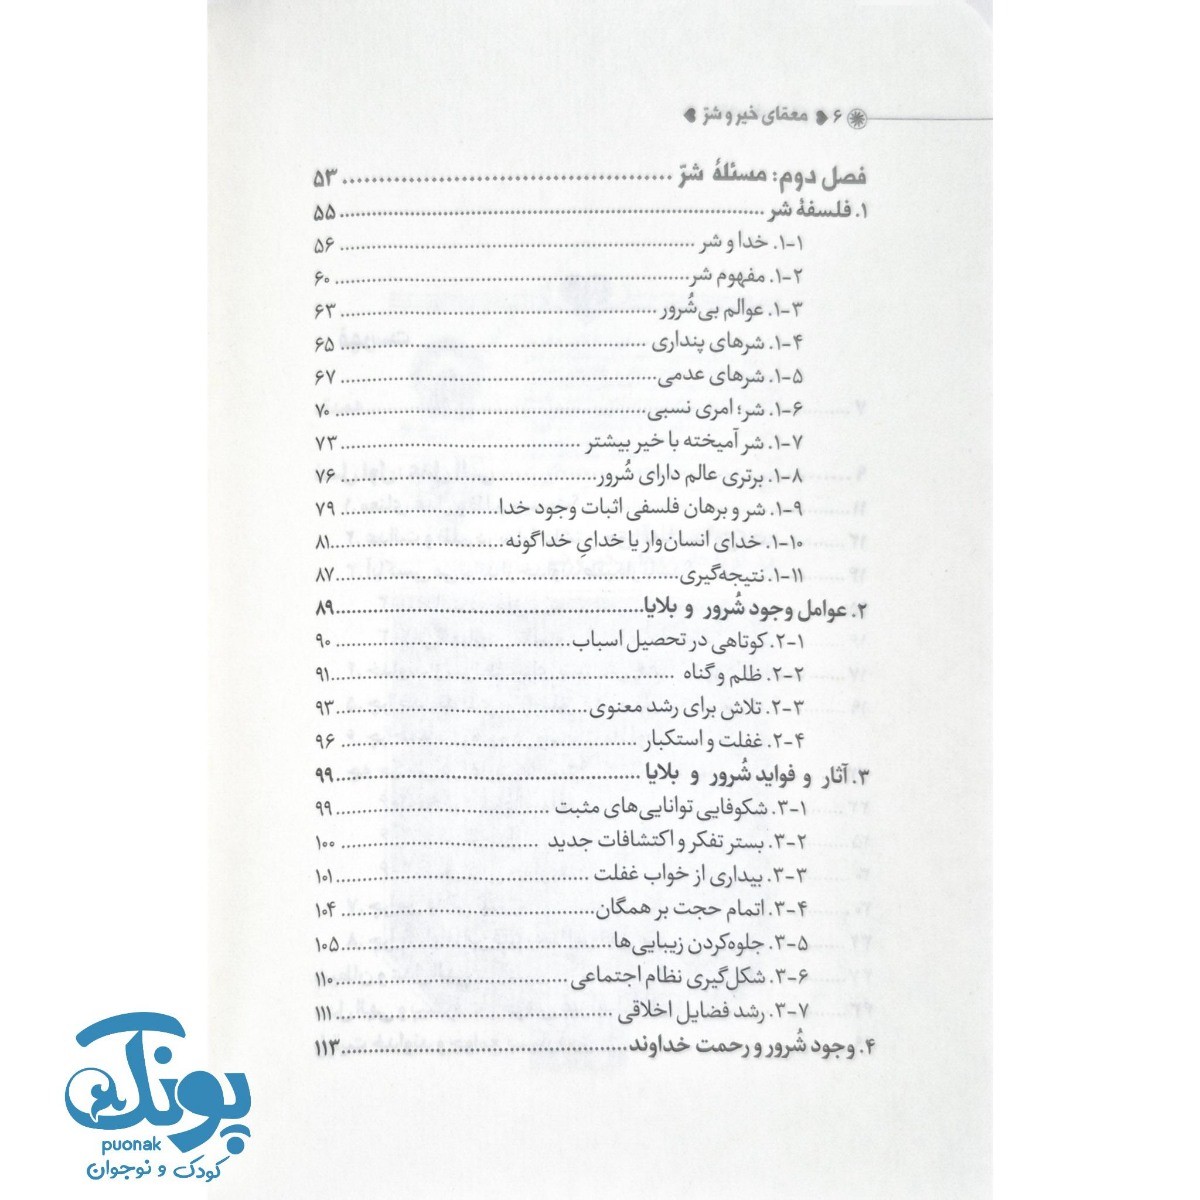 ۶ معمّای خیر و شرّ
فصل دوم: مسئلهٔ شرّ ........ ۵۳
۱. فلسفهٔ شر ........ ۵۵
۱-۱. خدا و شر ........ ۵۶
۱-۲. مفهوم شر ........ ۶۰
۱-۳. عوالم بی‌شُرور ........ ۶۳
۱-۴. شرهای پنداری ........ ۶۵
۱-۵. شرهای عدمی ........ ۶۷
۱-۶. شر؛ امری نسبی ........ ۷۰
۱-۷. شر آمیخته با خیر بیشتر ........ ۷۳
۱-۸. برتری عالم دارای شُرور ........ ۷۶
۱-۹. شر و برهان فلسفی اثبات وجود خدا ........ ۷۹
۱-۱۰. خدای انسان‌وار یا خدایِ خداگونه ........ ۸۱
۱-۱۱. نتیجه‌گیری ........ ۸۷
۲. عوامل وجود شُرور و بلایا ........ ۸۹
۲-۱. کوتاهی در تحصیل اسباب ........ ۹۰
۲-۲. ظلم و گناه ........ ۹۱
۲-۳. تلاش برای رشد معنوی ........ ۹۳
۲-۴. غفلت و استکبار ........ ۹۶
۳. آثار و فواید شُرور و بلایا ........ ۹۹
۳-۱. شکوفایی توانایی‌های مثبت ........ ۹۹
۳-۲. بستر تفکر و اکتشافات جدید ........ ۱۰۰
۳-۳. بیداری از خواب غفلت ........ ۱۰۱
۳-۴. اتمام حجت بر همگان ........ ۱۰۴
۳-۵. جلوه‌کردن زیبایی‌ها ........ ۱۰۵
۳-۶. شکل‌گیری نظام اجتماعی ........ ۱۱۰
۳-۷. رشد فضایل اخلاقی ........ ۱۱۱
۴. وجود شُرور و رحمت خداوند ........ ۱۱۳
پونک
puonak
کودک و نوجوان